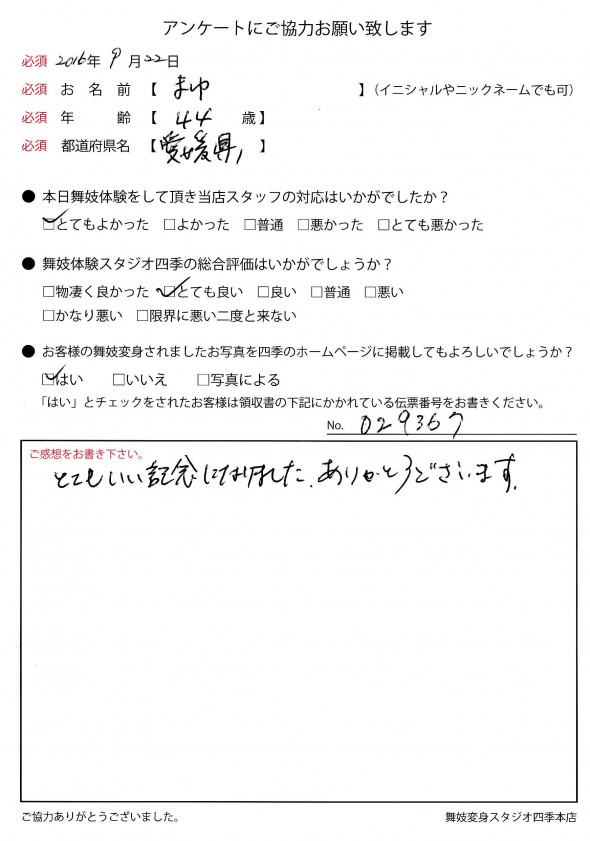 アンケートにご協力お願い致します
必須 2016年 9月 22日
必須 お名前【 まゆ 】(イニシャルやニックネームでも可)
必須 年齢【 44 歳】
必須 都道府県名【 愛媛県 】
● 本日舞妓体験をして頂き当店スタッフの対応はいかがでしたか?
☑とてもよかった □よかった □普通 □悪かった □とても悪かった
● 舞妓体験スタジオ四季の総合評価はいかがでしょうか?
□物凄く良かった ☑とても良い □良い □普通 □悪い
□かなり悪い □限界に悪い二度と来ない
● お客様の舞妓変身されましたお写真を四季のホームページに掲載してもよろしいでしょうか?
☑はい □いいえ □写真による
「はい」とチェックをされたお客様は領収書の下記にかかれている伝票番号をお書きください。
No. 029367
ご感想をお書き下さい。
とてもいい記念になりました。ありがとうございます。
ご協力ありがとうございました。
舞妓変身スタジオ四季本店